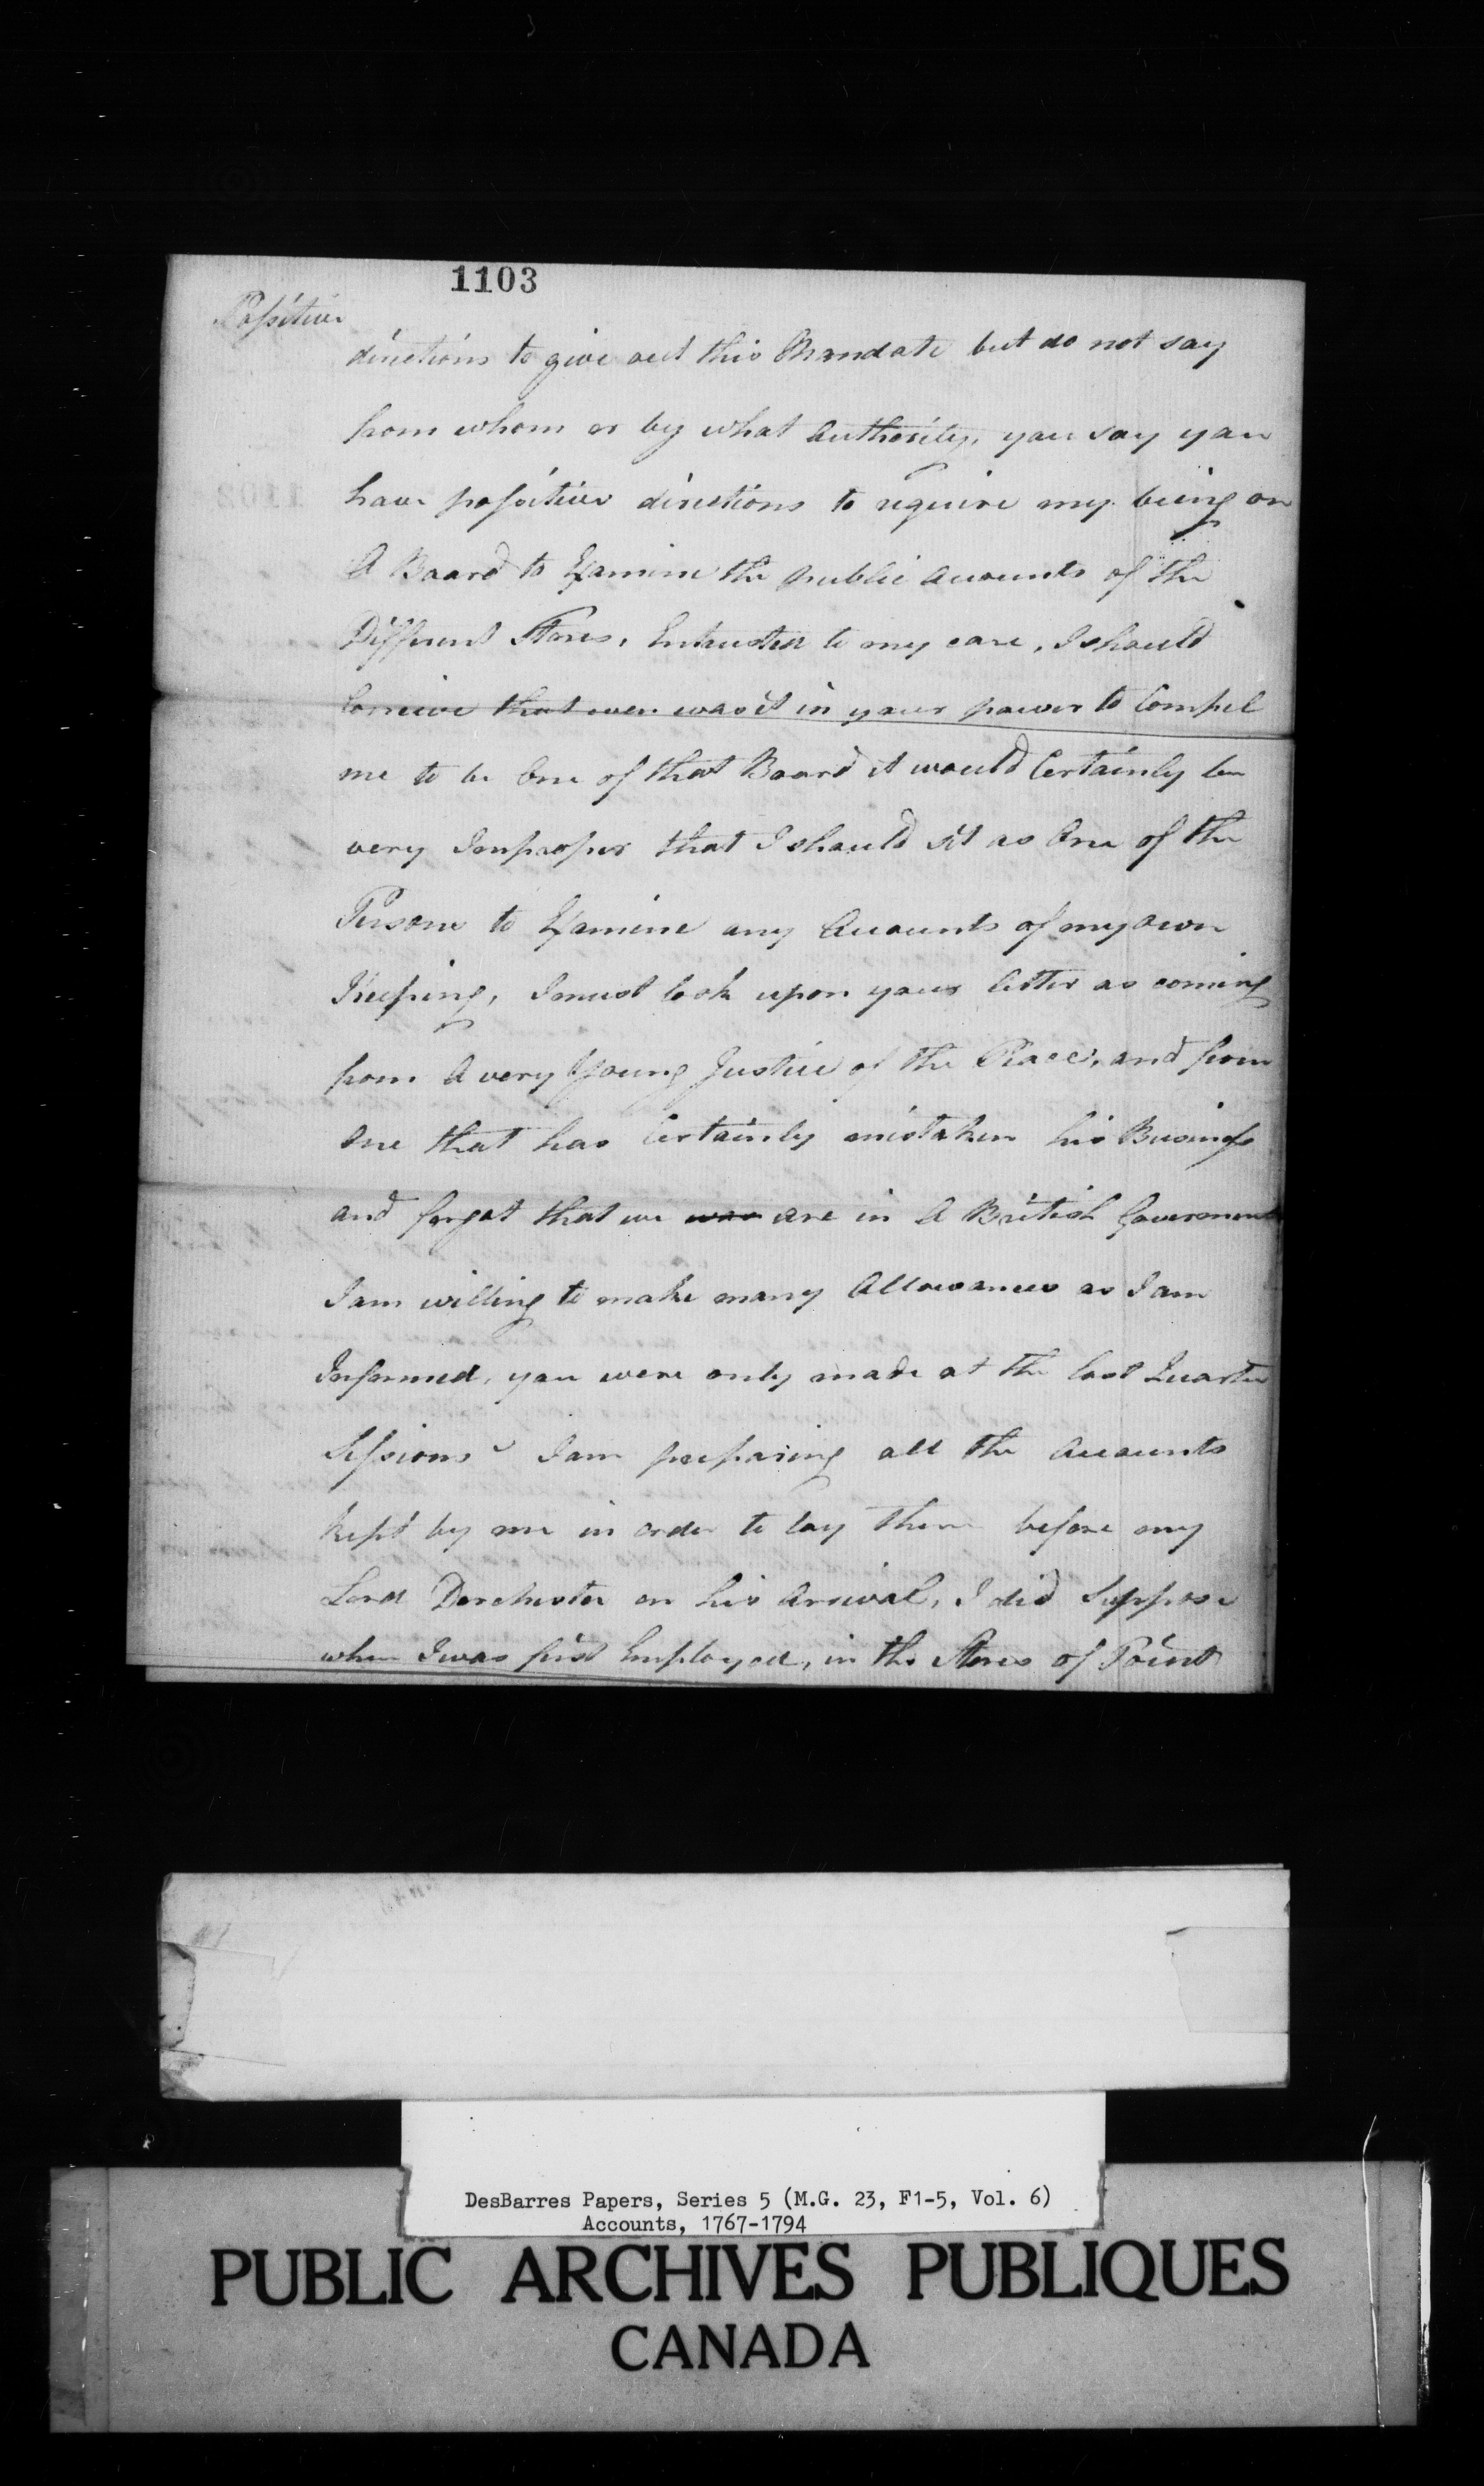 1103
Possitive
directions to give out this Mandate but do not say
from whom or by what Authority, you say you
have possitive directions to require my being on
A Board to Examine the public Accounts of the
Different Stores, Entrusted to my care, I should
Conceive that even was it in your power to Compel
me to be One of that Board it would Certainly be
very Improper that I should sit as One of the
Persons to Examine any Accounts of my own
Keeping, I must look upon your letter as coming
from A very Young Justice of the Peace, and from
One that has Certainly mistaken his Business
and forgot that we was are in A British Government
I am willing to make many Allowances as I am
Informed, you were only made at the last Quarter
Sessions I am preparing all the Accounts
kept by me in order to lay them before my
Lord Dorchester on his Arrival, I did Suppose
when I was first Employed, in the Stores of Point
DesBarres Papers, Series 5 (M.G. 23, F1-5, Vol. 6)
Accounts, 1767-1794
PUBLIC ARCHIVES PUBLIQUES
CANADA